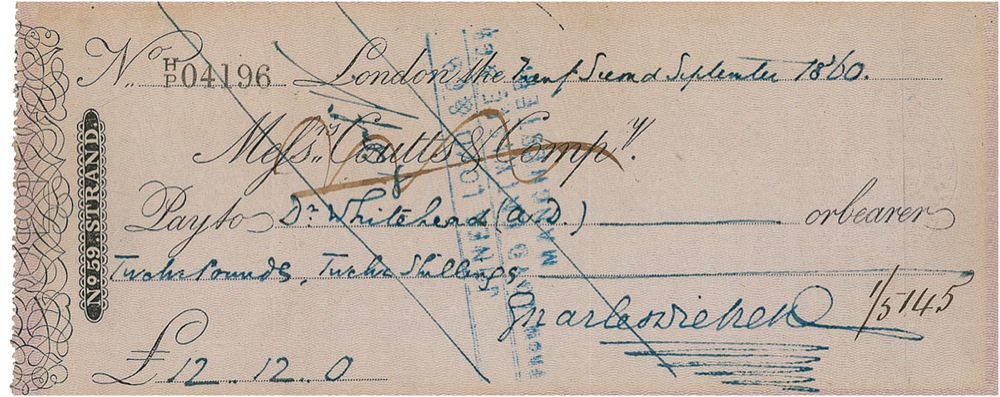 No. H/P 04196 London the Twenty Second September 1860.
Messrs. Coutts & Compy.
Pay to Dr. Whitehead (A.D.) or bearer
Twelve Pounds, Twelve Shillings
Charles Dickens
1/5145
£ 12 .. 12 .. 0
No. 59, STRAND.
MANCHESTER